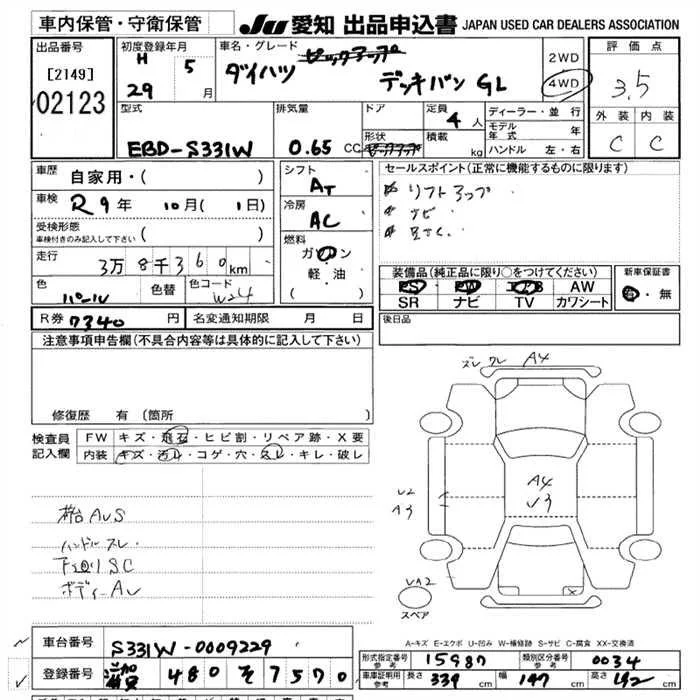 車内保管・守衛保管
JU 愛知 出品申込書 JAPAN USED CAR DEALERS ASSOCIATION
出品番号
[2149]
02123
初度登録年月
H 29 5 月
車名・グレード
ダイハツ ピックアップ デッキバン GL
2WD
4WD
評価点
3.5
外装 内装
C C
型式
EBD-S331W
排気量
0.65 CC
ドア
形状
定員
4 人
積載
kg
ディーラー・並行
モデル年式 年
ハンドル 左・右
車歴 自家用・( )
車検 R9年 10月( 1日)
受検形態
車検付きのみ記入して下さい ( )
走行 3万8千360km
色 パール
色替
色コード W24
シフト AT
冷房 AC
燃料
ガソリン
軽油
( )
セールスポイント(正常に機能するものに限ります)
リフトアップ
ナビ
装備品(純正品に限り○をつけてください)
PS PW エアB AW
SR ナビ TV カワシート
新車保証書
有・無
R券 7340 円
名変通知期限 月 日
後日品
注意事項申告欄(不具合内容等は具体的に記入して下さい)
修復歴 有 (箇所
検査員記入欄
FW キズ・飛石・ヒビ割・リペア跡・X要
内装 キズ・汚れ・コゲ・穴・スレ・キレ・破レ
ズレ ワレ A4
A4
V3
U2
A3
UA2
スペア
AUS
ハンドル スレ
下廻り SC
ボディー AU
A-キズ E-エクボ U-凹み W-補修跡 S-サビ C-腐食 XX-交換済
車台番号 S331W-0009229
登録番号 480 そ 7570
形式指定番号参考 15987
類別区分番号参考 0034
車庫証明用参考 長さ 339 cm 幅 147 cm 高さ 192 cm